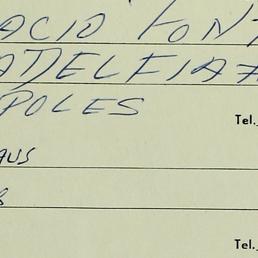 ACIO FONT
ADELFIA
POLES
Tel.
AUS
Tel.